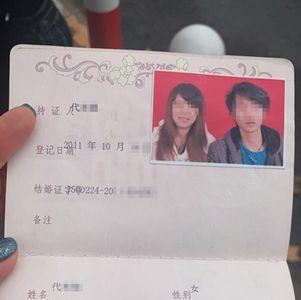 持证人 代
登记日期 2011 年 10 月
结婚证字号 J500224-20
备注
姓名 代
性别 女